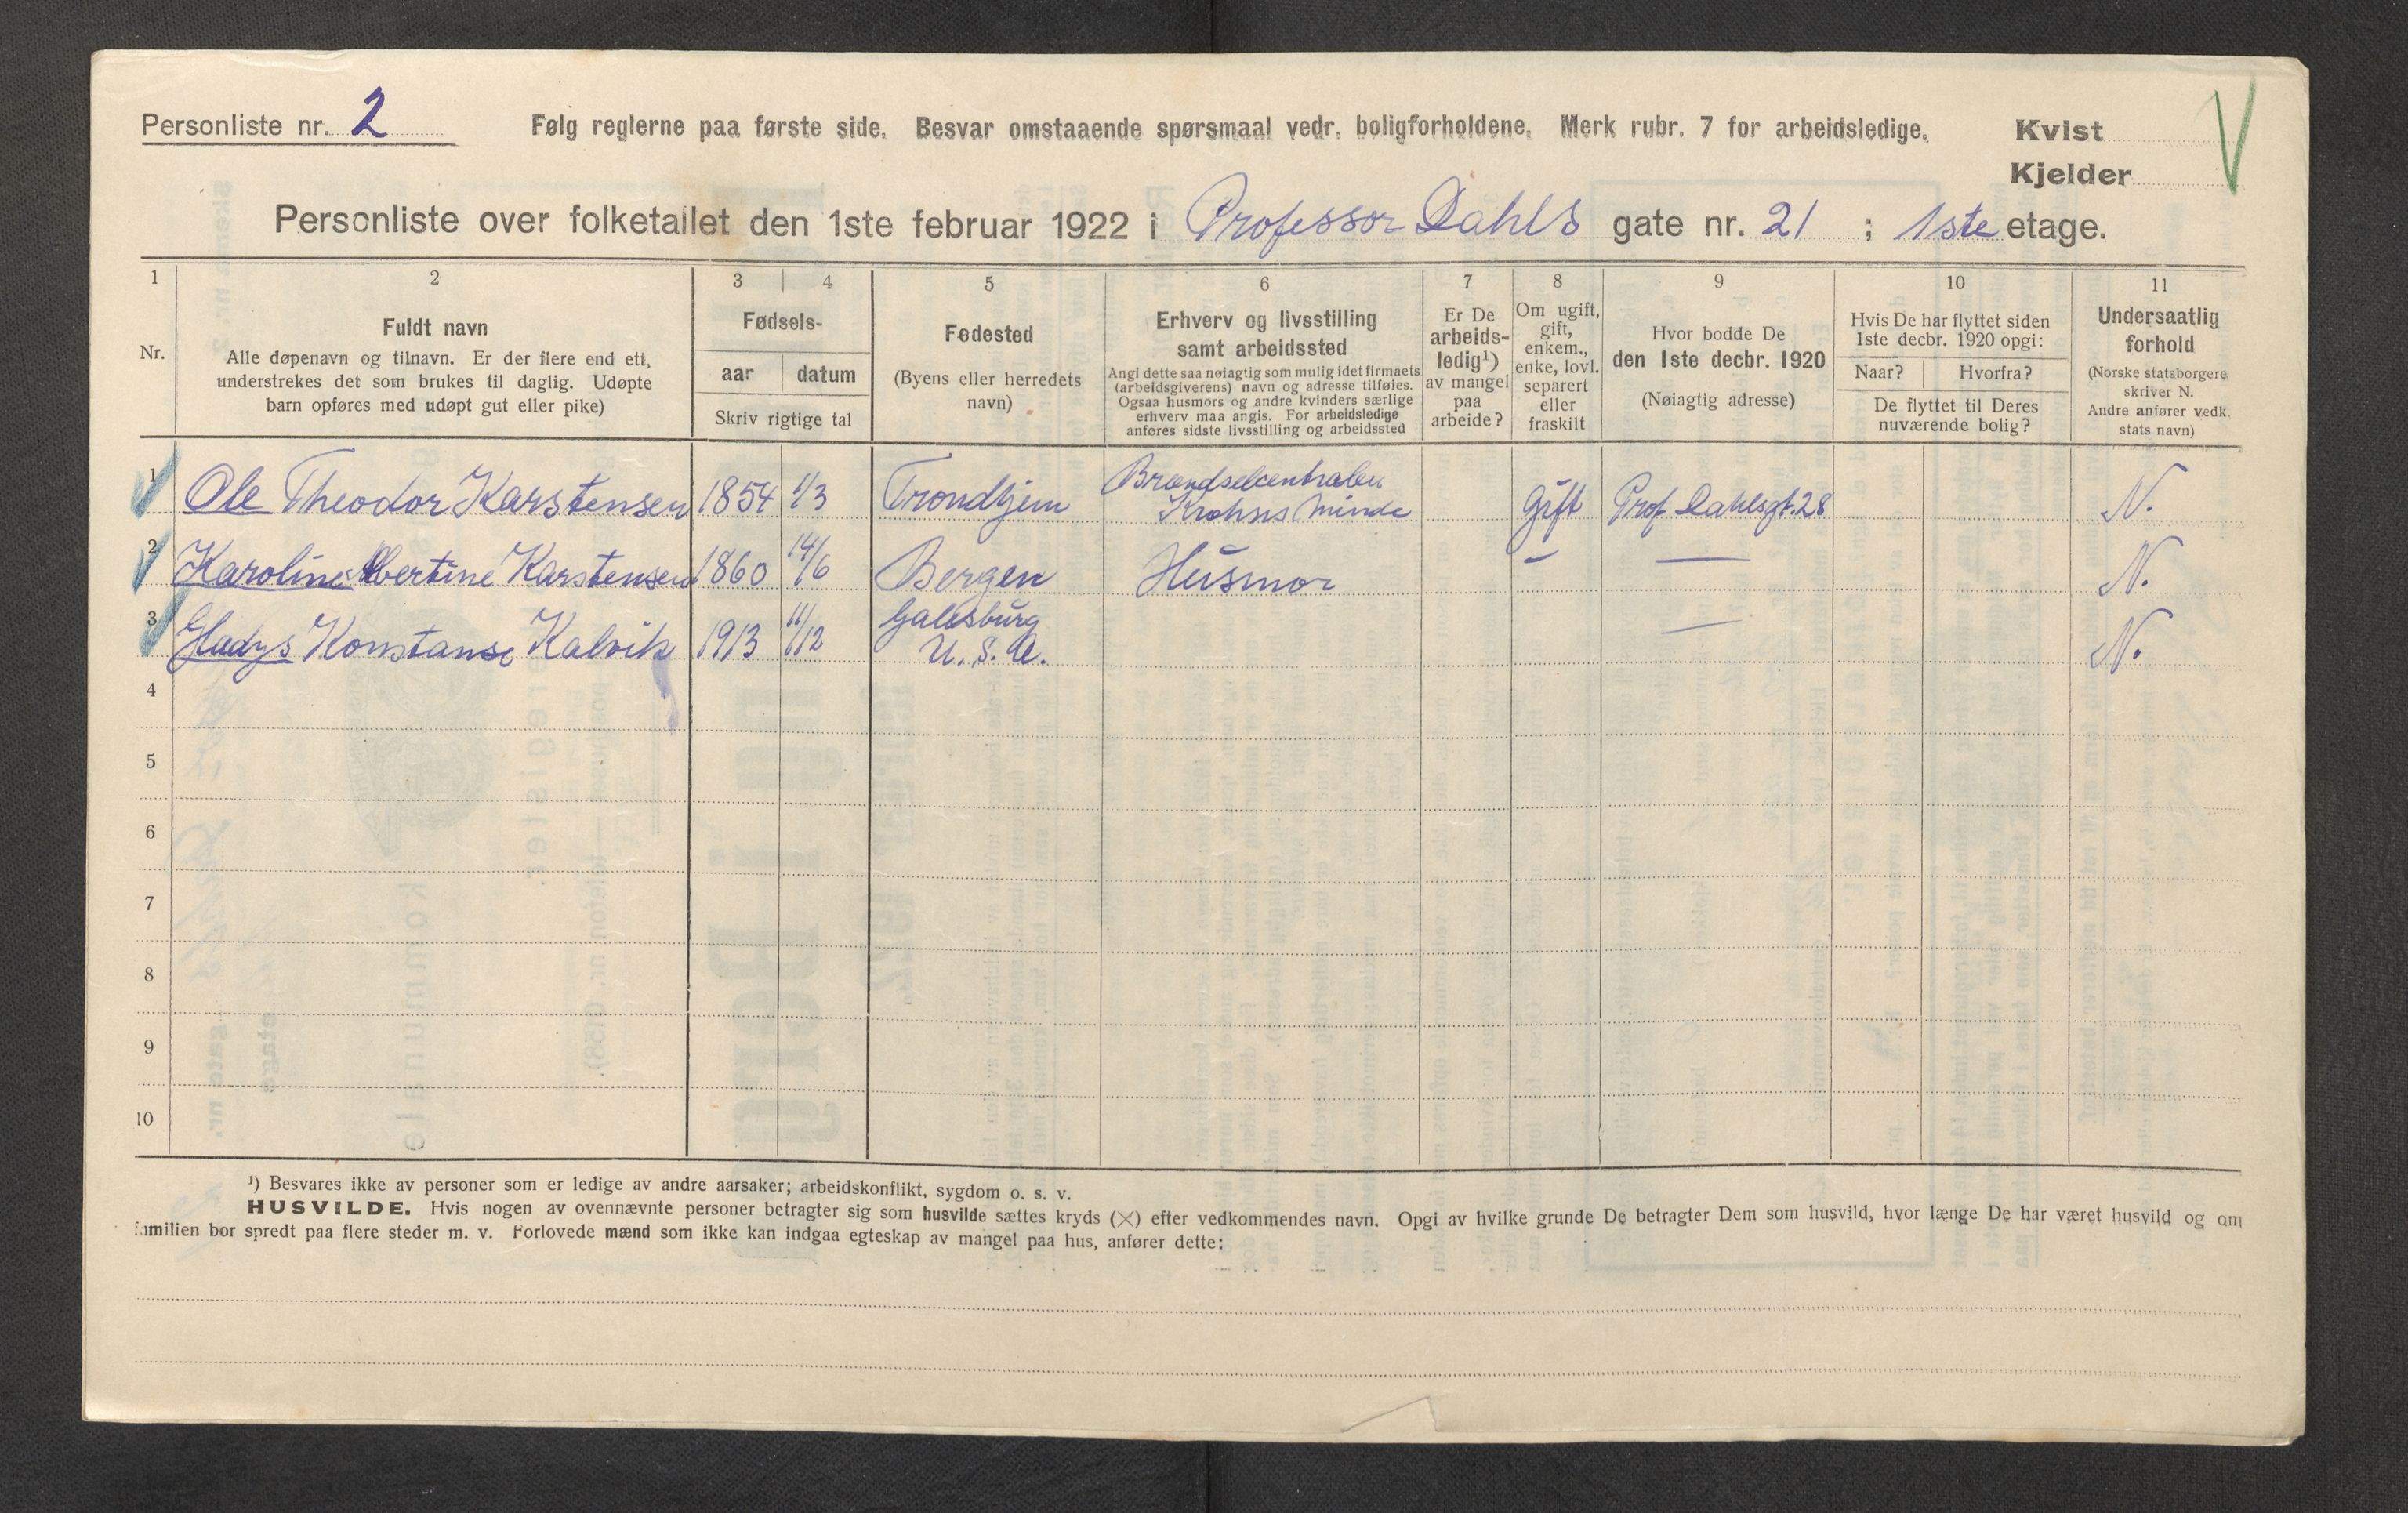 Personliste nr. 2
Følg reglerne paa første side. Besvar omstaaende spørsmaal vedr. boligforholdene. Merk rubr. 7 for arbeidsledige.
Kvist
Kjelder
V
Personliste over folketallet den 1ste februar 1922 i Professor Dahls gate nr. 21 ; 1ste etage.
1
Nr.
2
Fuldt navn
Alle døpenavn og tilnavn. Er der flere end ett,
understrekes det som brukes til daglig. Udøpte
barn opføres med udøpt gut eller pike)
3 4
Fødsels-
aar datum
Skriv rigtige tal
5
Fødested
(Byens eller herredets
navn)
6
Erhverv og livsstilling
samt arbeidssted
Angi dette saa nøiagtig som mulig idet firmaets
(arbeidsgiverens) navn og adresse tilføies.
Ogsaa husmors og andre kvinders særlige
erhverv maa angis. For arbeidsledige
anføres sidste livsstilling og arbeidssted
7
Er De
arbeids-
ledig¹)
av mangel
paa
arbeide?
8
Om ugift,
gift,
enkem.,
enke, lovl.
separert
eller
fraskilt
9
Hvor bodde De
den 1ste decbr. 1920
(Nøiagtig adresse)
10
Hvis De har flyttet siden
1ste decbr. 1920 opgi:
Naar? Hvorfra?
De flyttet til Deres
nuværende bolig?
11
Undersaatlig
forhold
(Norske statsborgere
skriver N.
Andre anfører vedk.
stats navn)
1 Ole Theodor Karstensen 1854 1/3 Trondhjem Brændselcentralen Krohns Minde Gift Prof. Dahlsgt. 28 N.
2 Karoline Albertine Karstensen 1860 14/6 Bergen Husmor – — N.
3 Gladys Konstanse Kalvik 1913 11/12 Galesburg U.S.A. — N.
4
5
6
7
8
9
10
¹) Besvares ikke av personer som er ledige av andre aarsaker; arbeidskonflikt, sygdom o. s. v.
HUSVILDE. Hvis nogen av ovennævnte personer betragter sig som husvilde sættes kryds (×) efter vedkommendes navn. Opgi av hvilke grunde De betragter Dem som husvild, hvor længe De har været husvild og om
familien bor spredt paa flere steder m. v. Forlovede mænd som ikke kan indgaa egteskap av mangel paa hus, anfører dette: